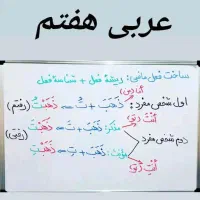 عربی هفتم
ساخت فعل ماضی: ریشه فعل + شناسه فعل
اول شخص مفرد: ذَهَبَ + تُ = ذَهَبْتُ (رفتم)
أنتَ (تو) مذکر: ذَهَبَ + تَ = ذَهَبْتَ
دوم شخص مفرد (رفتی)
أنتِ (تو) مؤنث: ذَهَبَ + تِ = ذَهَبْتِ